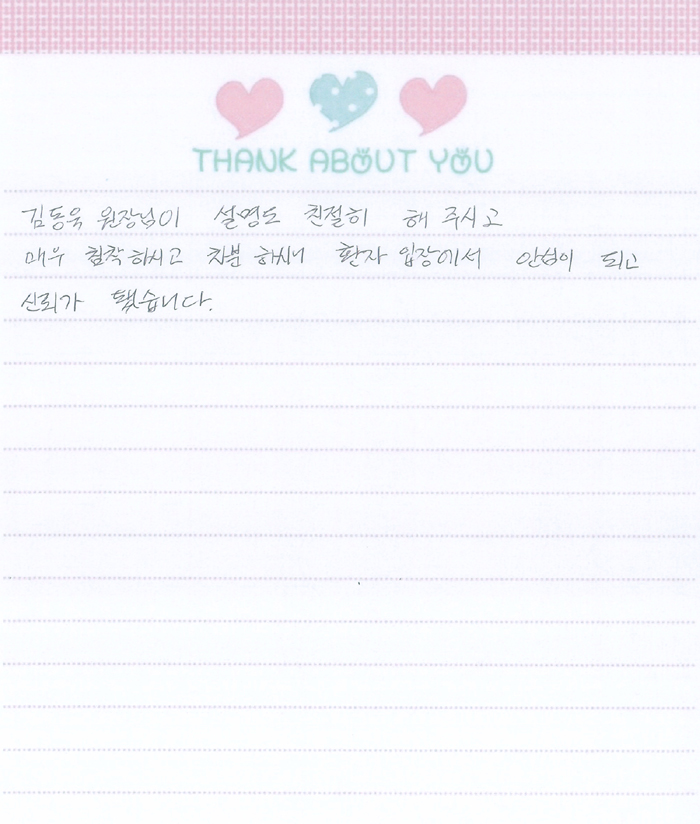 THANK ABOUT YOU
김동욱 원장님이 설명도 친절히 해 주시고
매우 침착하시고 차분 하시니 환자 입장에서 안심이 되고
신뢰가 됐습니다.